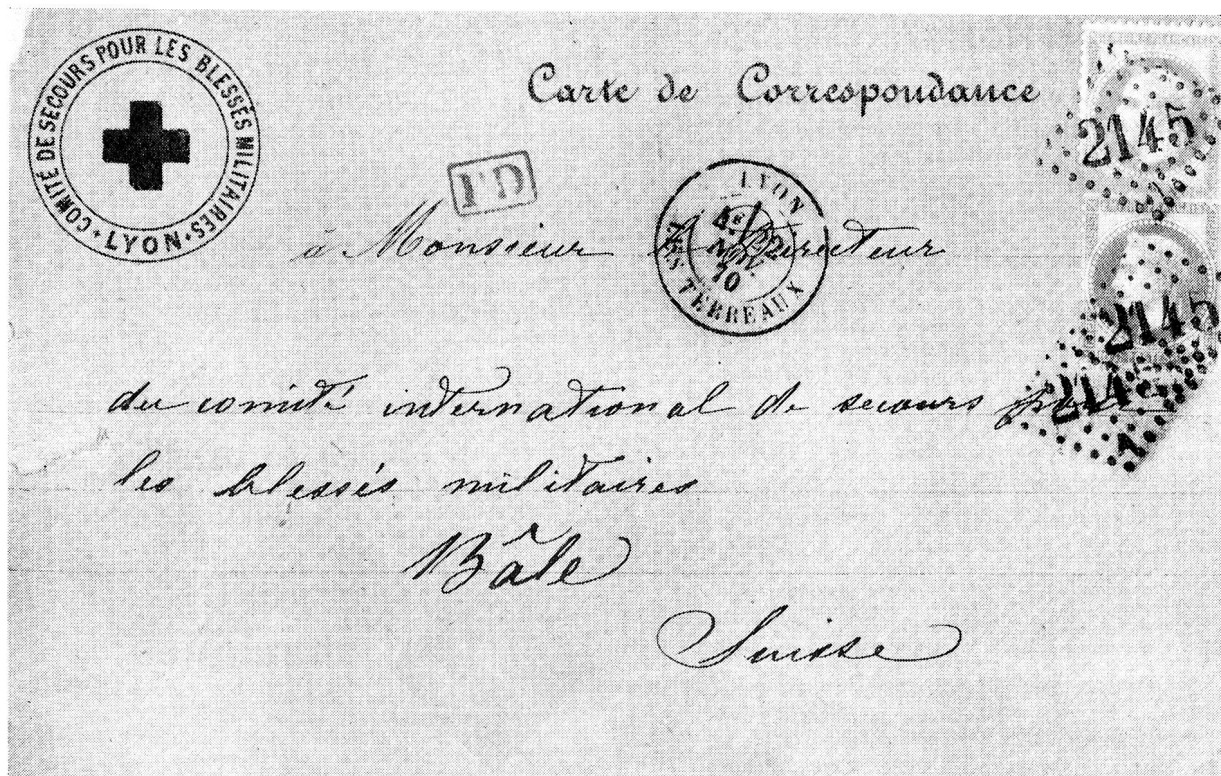 COMITÉ DE SECOURS POUR LES BLESSÉS MILITAIRES
• LYON •
Carte de Correspondance
2145
PD
LYON
70
LES TERREAUX
à Monsieur le Directeur
2145
du comité international de secours pour
214
A
les blessés militaires
Bâle
Suisse